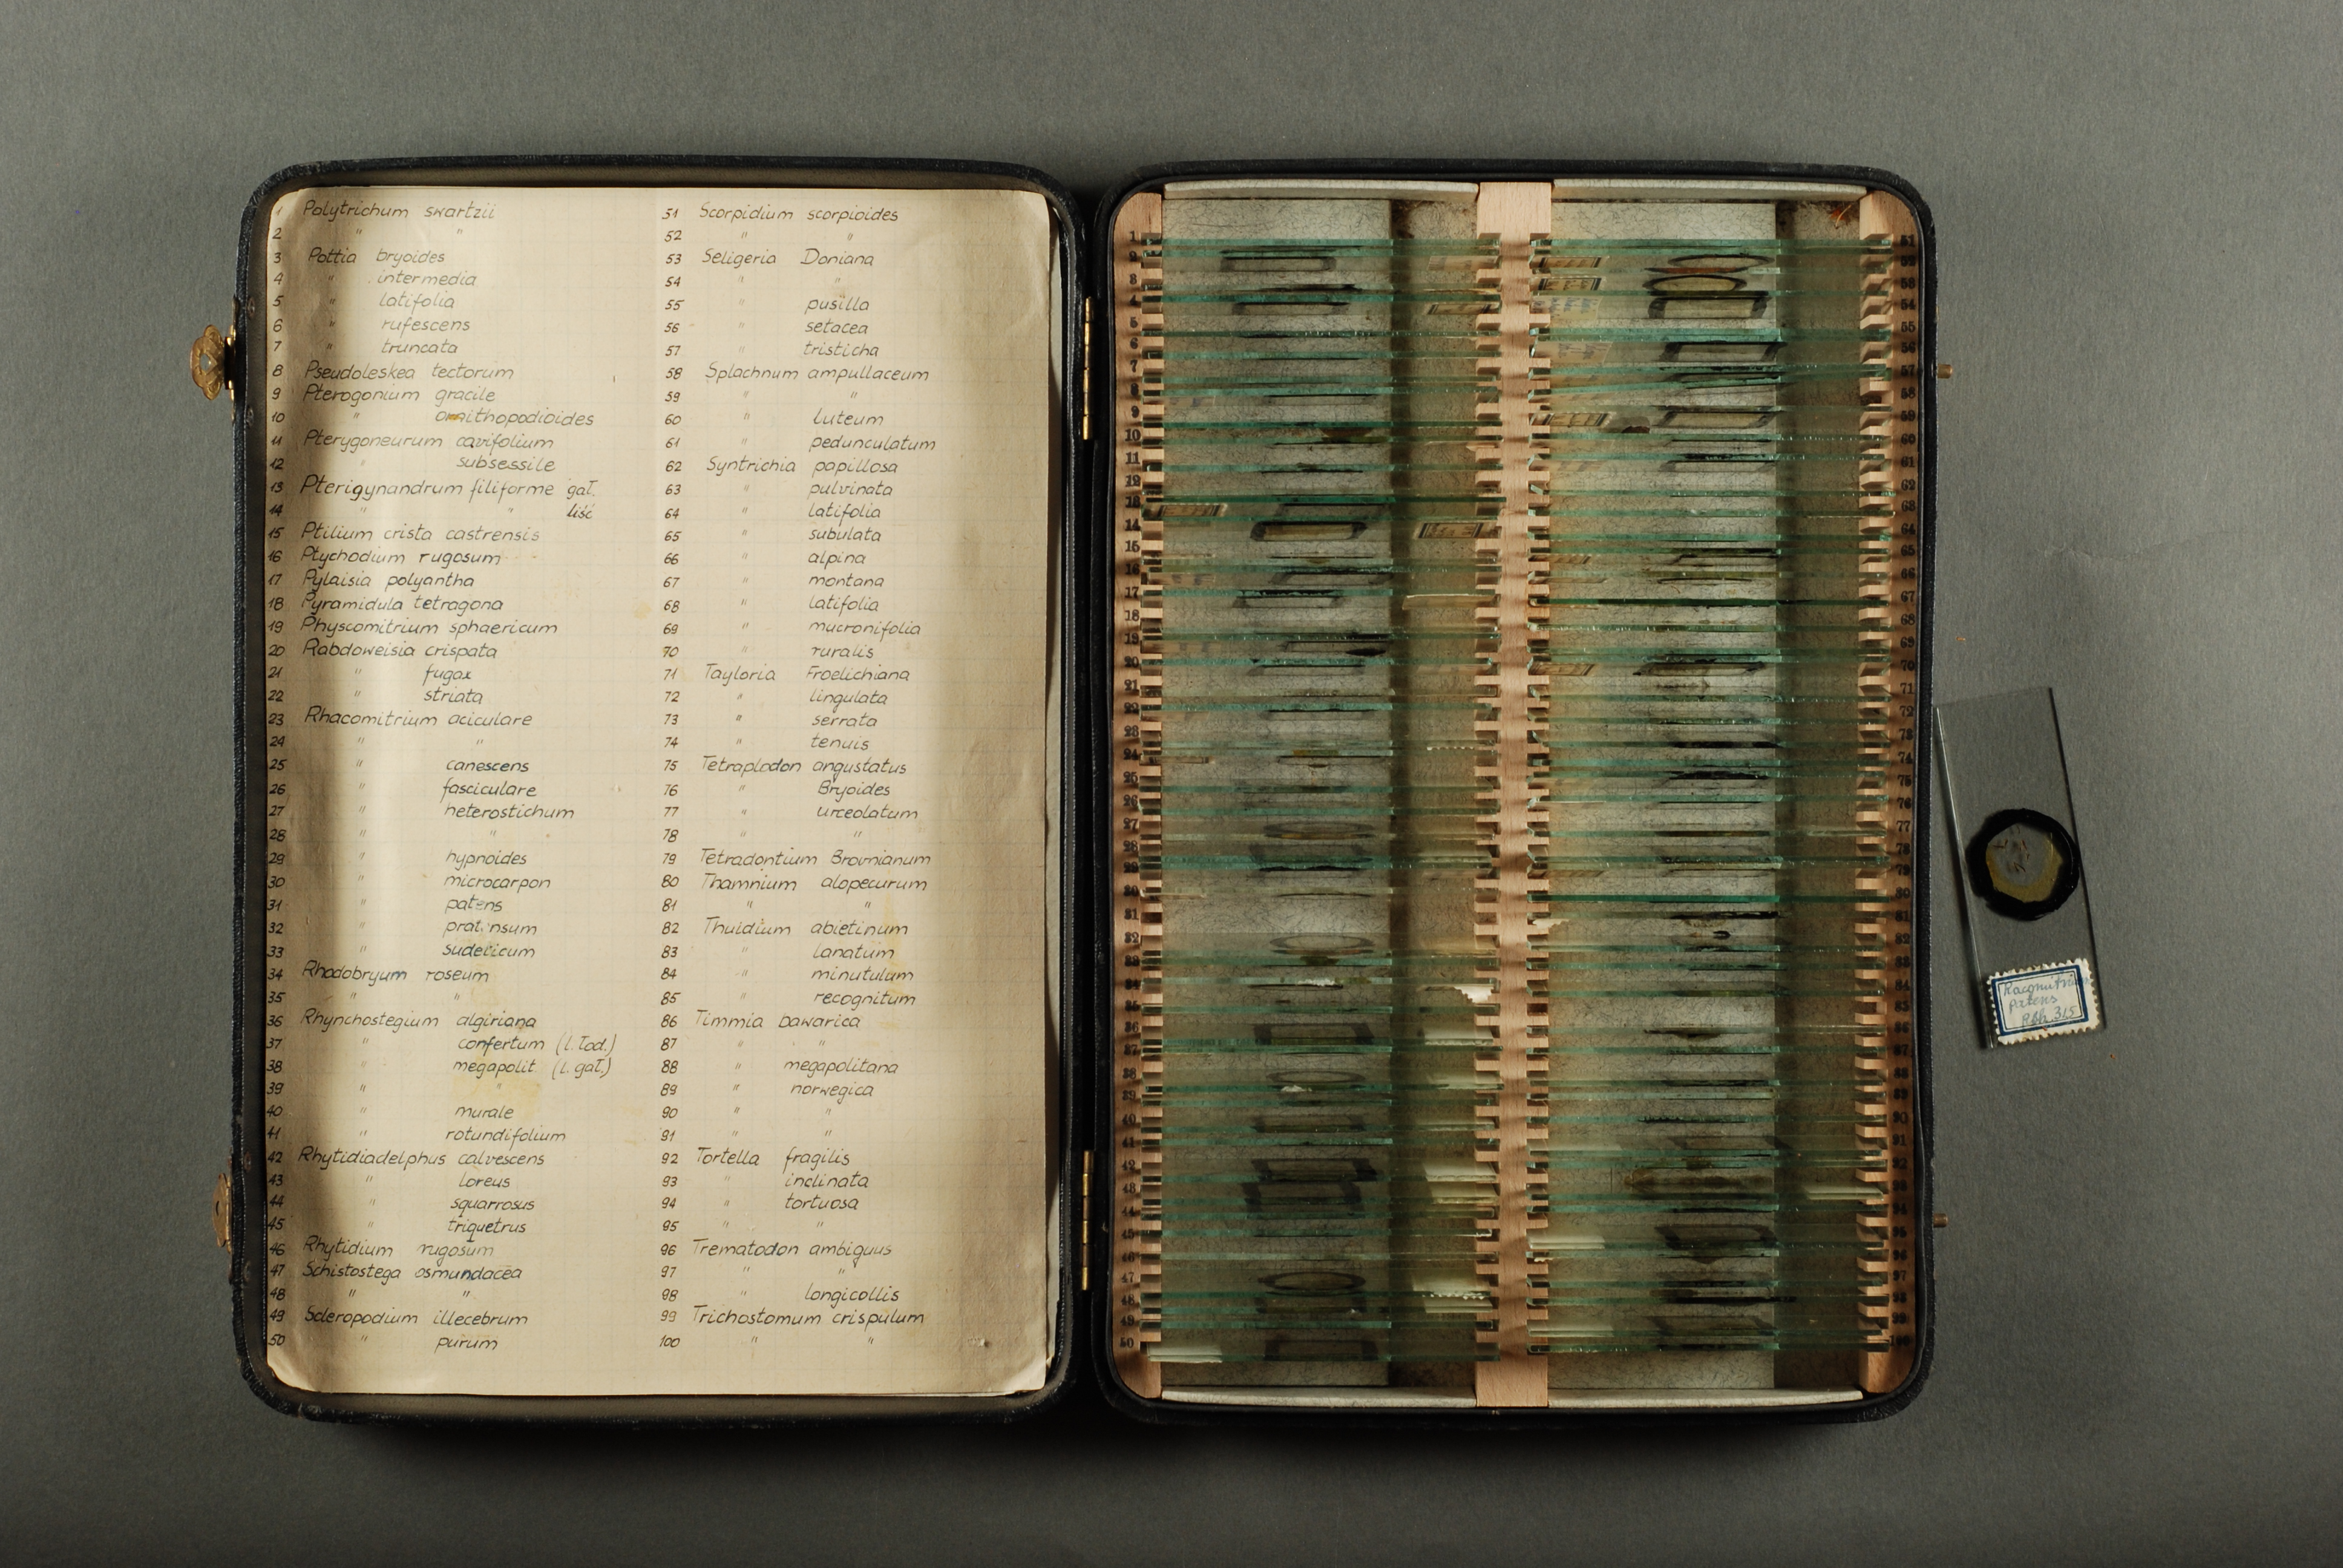 1 Polytrichum swartzii
2 " "
3 Pottia bryoides
4 " intermedia
5 " latifolia
6 " rufescens
7 " truncata
8 Pseudoleskea tectorum
9 Pterogonium gracile
10 " ornithopodioides
11 Pterygoneurum cavifolium
12 " subsessile
13 Pterigynandrum filiforme gał.
14 " " liść
15 Ptilium crista castrensis
16 Ptychodium rugosum
17 Pylaisia polyantha
18 Pyramidula tetragona
19 Physcomitrium sphaericum
20 Rabdoweisia crispata
21 " fugax
22 " striata
23 Rhacomitrium aciculare
24 " "
25 " canescens
26 " fasciculare
27 " heterostichum
28 " "
29 " hypnoides
30 " microcarpon
31 " patens
32 "
33 " sudeticum
34 Rhodobryum roseum
35 " "
36 Rhynchostegium algiriana
37 " confertum (l. łod.)
38 " megapolit. (l. gał.)
39 " "
40 " murale
41 " rotundifolium
42 Rhytidiadelphus calvescens
43 " loreus
44 " squarrosus
45 " triquetrus
46 Rhytidium rugosum
47 Schistostega osmundacea
48 " "
49 Scleropodium illecebrum
50 " purum
51 Scorpidium scorpioides
52 " "
53 Seligeria Doniana
54 " "
55 " pusilla
56 " setacea
57 " tristicha
58 Splachnum ampullaceum
59 " "
60 " luteum
61 " pedunculatum
62 Syntrichia papillosa
63 " pulvinata
64 " latifolia
65 " subulata
66 " alpina
67 " montana
68 " latifolia
69 " mucronifolia
70 " ruralis
71 Tayloria Froelichiana
72 " lingulata
73 " serrata
74 " tenuis
75 Tetraplodon angustatus
76 " Bryoides
77 " urceolatum
78 " "
79 Tetradontium Brovnianum
80 Thamnium alopecurum
81 " "
82 Thuidium abietinum
83 " lanatum
84 " minutulum
85 " recognitum
86 Timmia bawarica
87 " "
88 " megapolitana
89 " norwegica
90 " "
91 " "
92 Tortella fragilis
93 " inclinata
94 " tortuosa
95 " "
96 Trematodon ambiguus
97 " "
98 " longicollis
99 Trichostomum crispulum
100 " "
patens
Rbh. 315